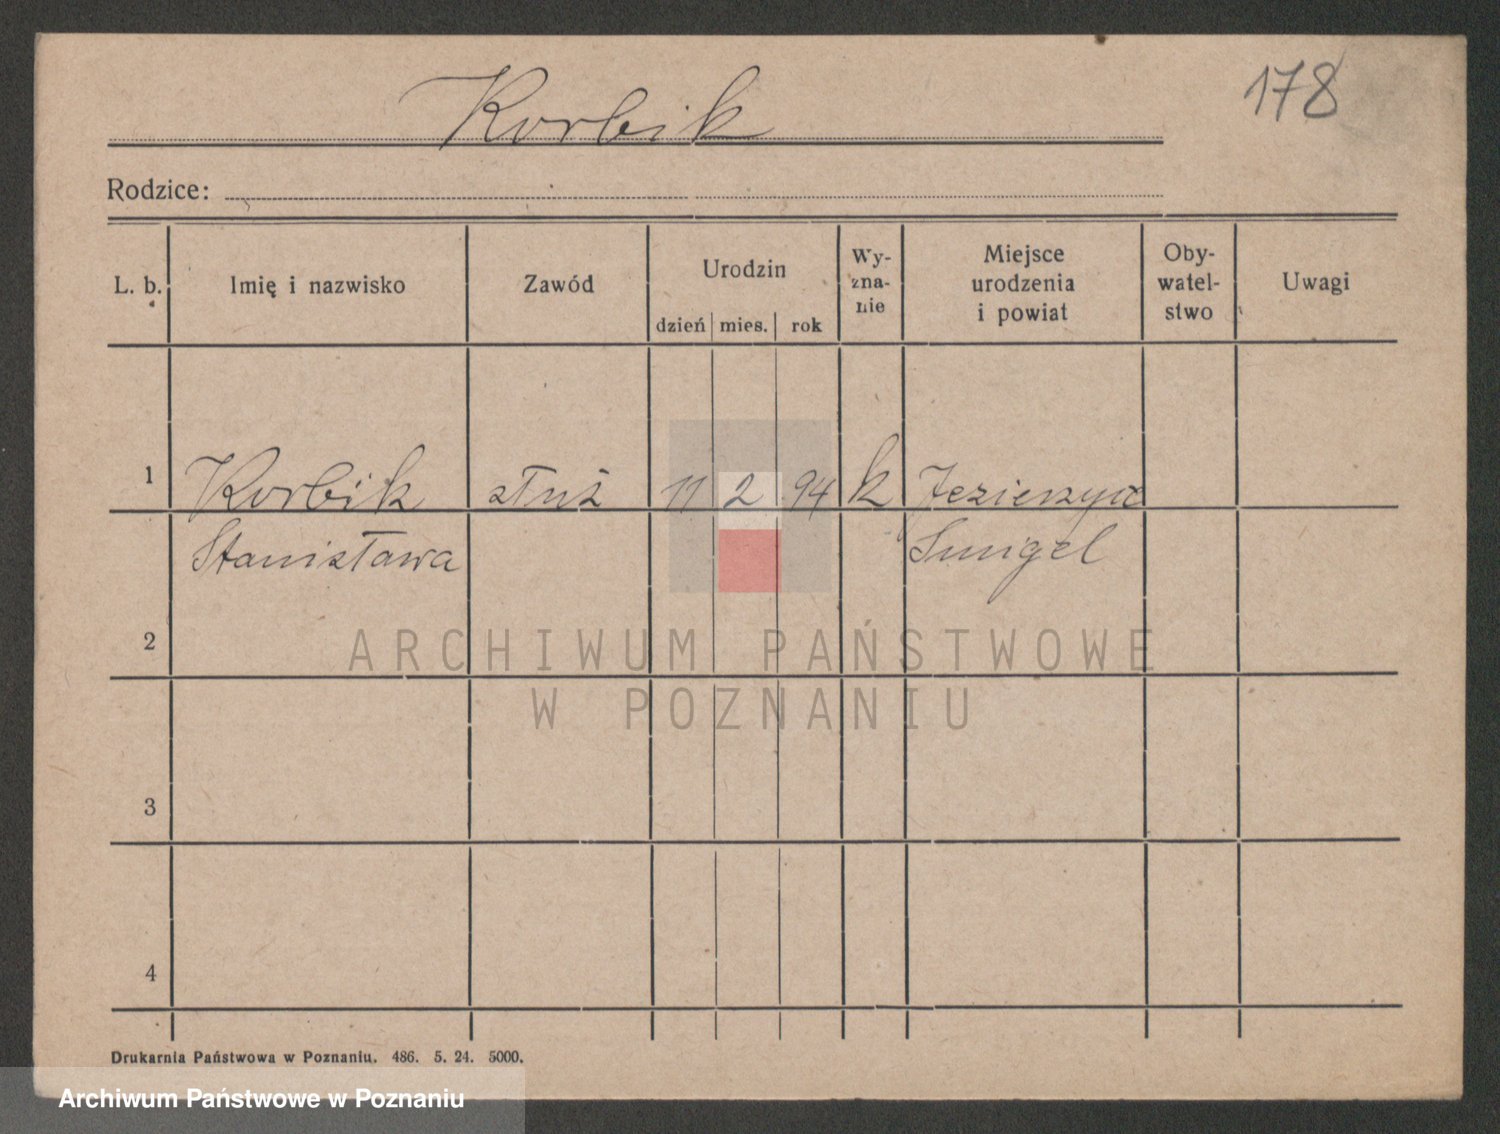 Korbik
178
Rodzice:
L. b.
Imię i nazwisko
Zawód
Urodzin
dzień mies. rok
Wy-
zna-
nie
Miejsce
urodzenia
i powiat
Oby-
watel-
stwo
Uwagi
1 Korbik służ 11 2 94 k
Stanisława Smigel
2
ARCHIWUM PAŃSTWOWE
W POZNANIU
3
4
Drukarnia Państwowa w Poznaniu. 486. 5. 24. 5000.
Archiwum Państwowe w Poznaniu